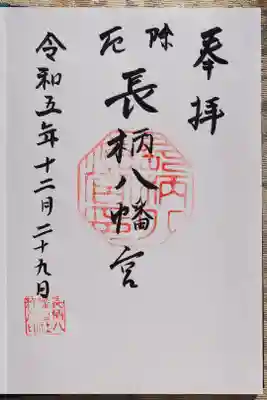 奉拝
厄除
長柄八幡宮
令和五年十二月二十九日